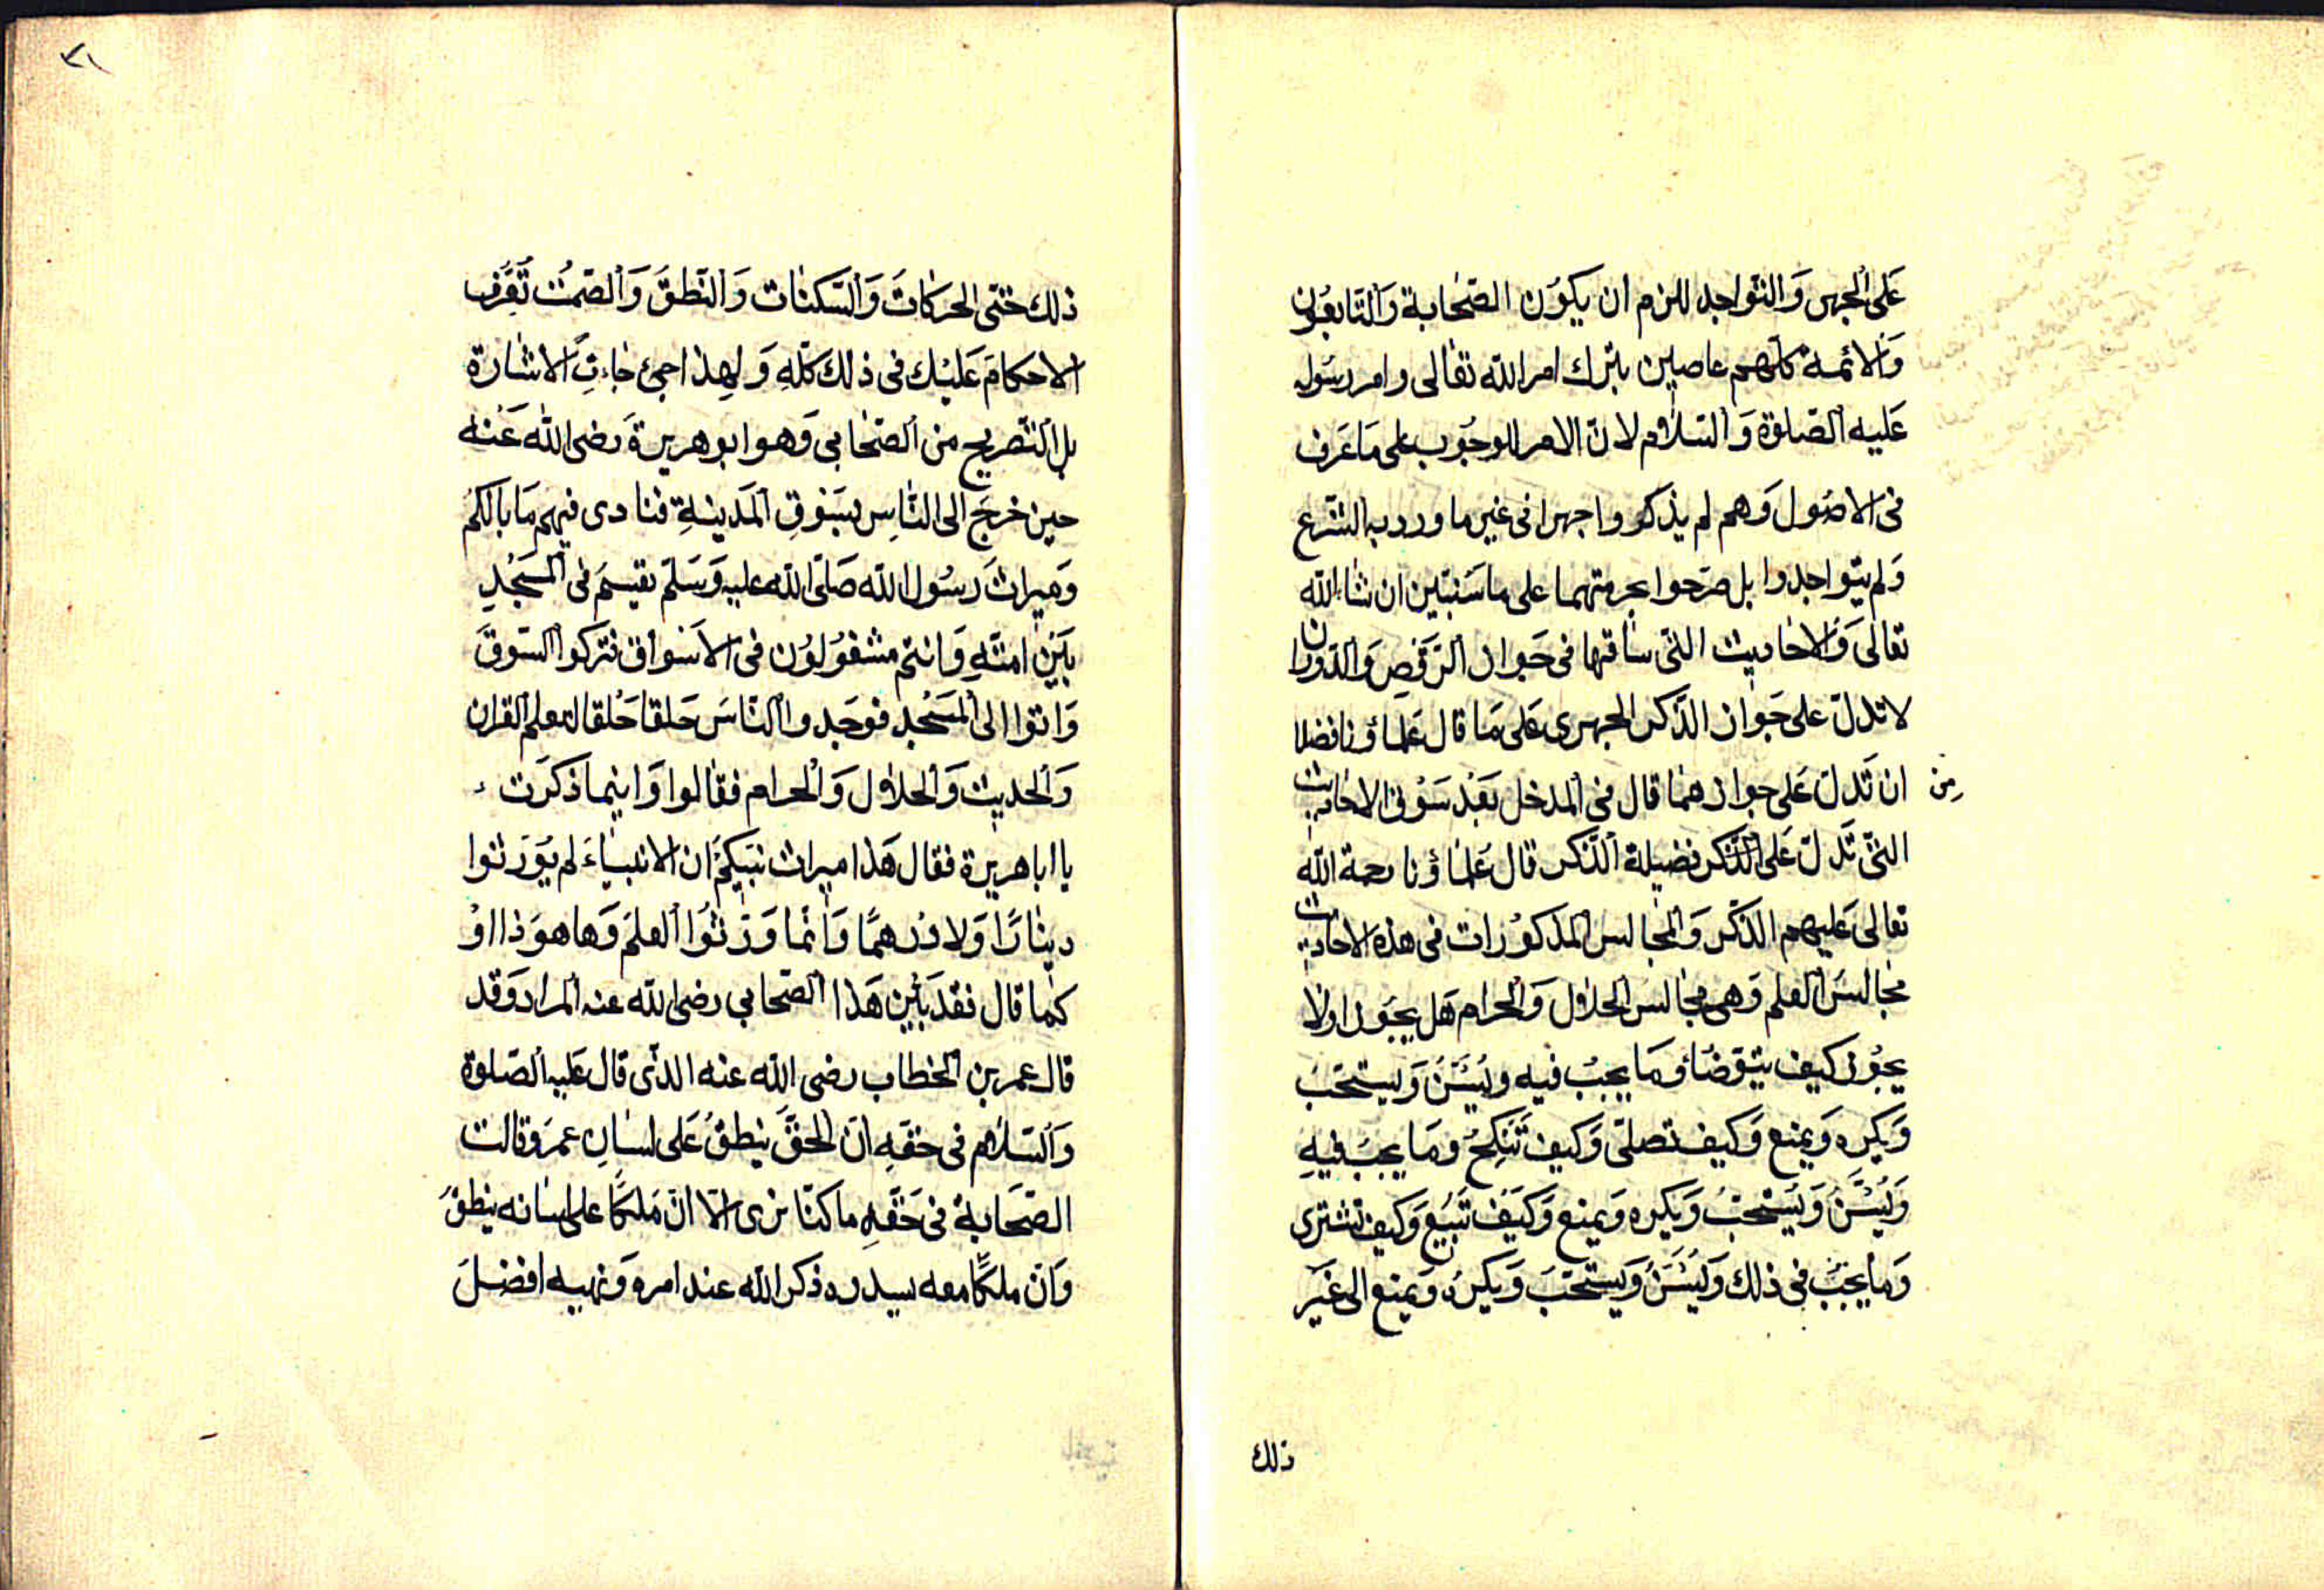 على الجهر والتواجد للزم ان يكون الصحابة والتابعون
والائمة كلهم عاصين بترك امر الله تعالى وامر رسوله
عليه الصلوة والسلام لان الامر للوجوب على ما عرف
فى الاصول وهم لم يذكروا جهرا فى غير ما ورد به الشرع
ولم يتواجدوا بل صرحوا بحرمتهما على ما سنبين ان شاء الله
تعالى والاحاديث التى ساقها فى جواز الرقص والدوران
لا تدل على جواز الذكر الجهرى على ما قال علماؤنا فضلا
من
ان تدل على جوازهما قال فى المدخل بعد سوق الاحاديث
التى تدل على الذكر فضيلة الذكر قال علماؤنا رحمة الله
تعالى عليهم الذكر والمجالس المذكورات فى هذه الاحاديث
مجالس العلم وهى مجالس الحلال والحرام هل يجوز اولا
يجوز كيف يتوضأ وما يجب فيه ويسن ويستحب
ويكره ويمنع وكيف تصلى وكيف تنكح وما يجب فيه
ويسن ويستحب ويكره ويمنع وكيف تبيع وكيف تشترى
وما يجب فى ذلك ويسن ويستحب ويكره ويمنع الى غير
ذلك
٣١
ذلك حتى الحركات والسكنات والنطق والصمت تعرف
الاحكام عليك فى ذلك كله ولهذا جاءت الاشارة
بل التصريح من الصحابى وهو ابو هريرة رضى الله عنه
حين خرج الى الناس بسوق المدينة فنادى فيهم ما بالكم
وميراث رسول الله صلى الله عليه وسلم يقسم فى المسجد
بين امته وانتم مشغولون فى الاسواق فتركوا السوق
واتوا الى المسجد فوجدوا الناس حلقا حلقا لتعلم القران
والحديث والحلال والحرام فقالوا واينما ذكرت
يا ابا هريرة فقال هذا ميراث نبيكم ان الانبياء لم يورثوا
دينارا ولا درهما وانما ورثوا العلم وها هو ذا او
كما قال فقد بين هذا الصحابي رضى الله عنه المراد وقد
قال عمر بن الخطاب رضى الله عنه الذى قال عليه الصلوة
والسلام فى حقه ان الحق ينطق على لسان عمر وقالت
الصحابة فى حقه ما كنا نرى الا ان ملكا على لسانه ينطق
وان ملكا معه يسدده ذكر الله عند امره ونهيه افضل